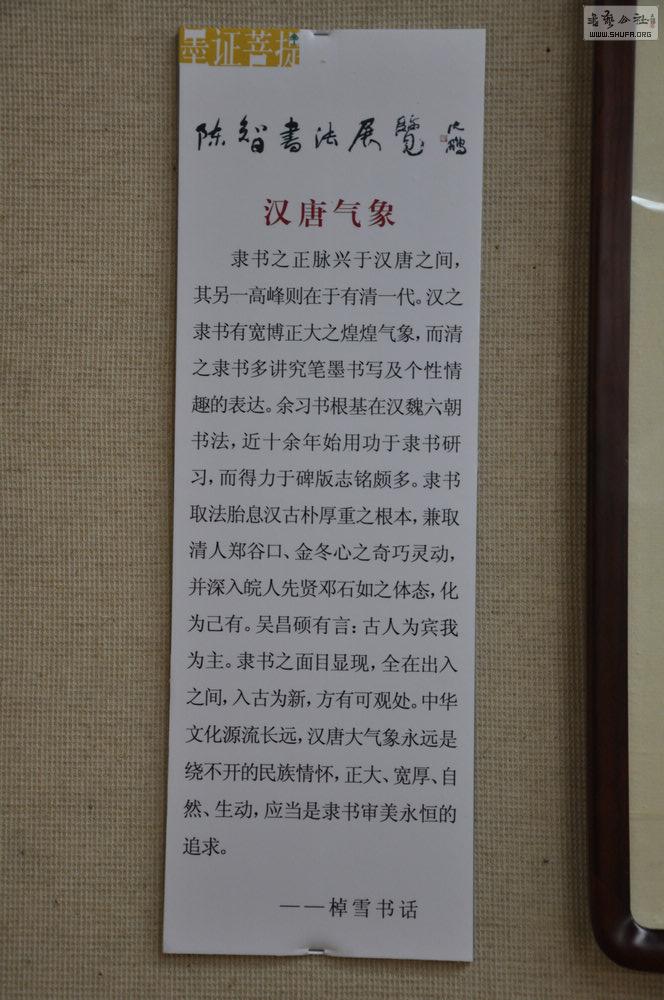 书艺公社
WWW.SHUFA.ORG
墨证菩提
陈智书法展覽 沈鹏
汉唐气象
隶书之正脉兴于汉唐之间，
其另一高峰则在于有清一代。汉之
隶书有宽博正大之煌煌气象，而清
之隶书多讲究笔墨书写及个性情
趣的表达。余习书根基在汉魏六朝
书法，近十余年始用功于隶书研
习，而得力于碑版志铭颇多。隶书
取法胎息汉古朴厚重之根本，兼取
清人郑谷口、金冬心之奇巧灵动，
并深入皖人先贤邓石如之体态，化
为己有。吴昌硕有言：古人为宾我
为主。隶书之面目显现，全在出入
之间，入古为新，方有可观处。中华
文化源流长远，汉唐大气象永远是
绕不开的民族情怀，正大、宽厚、自
然、生动，应当是隶书审美永恒的
追求。
——棹雪书话